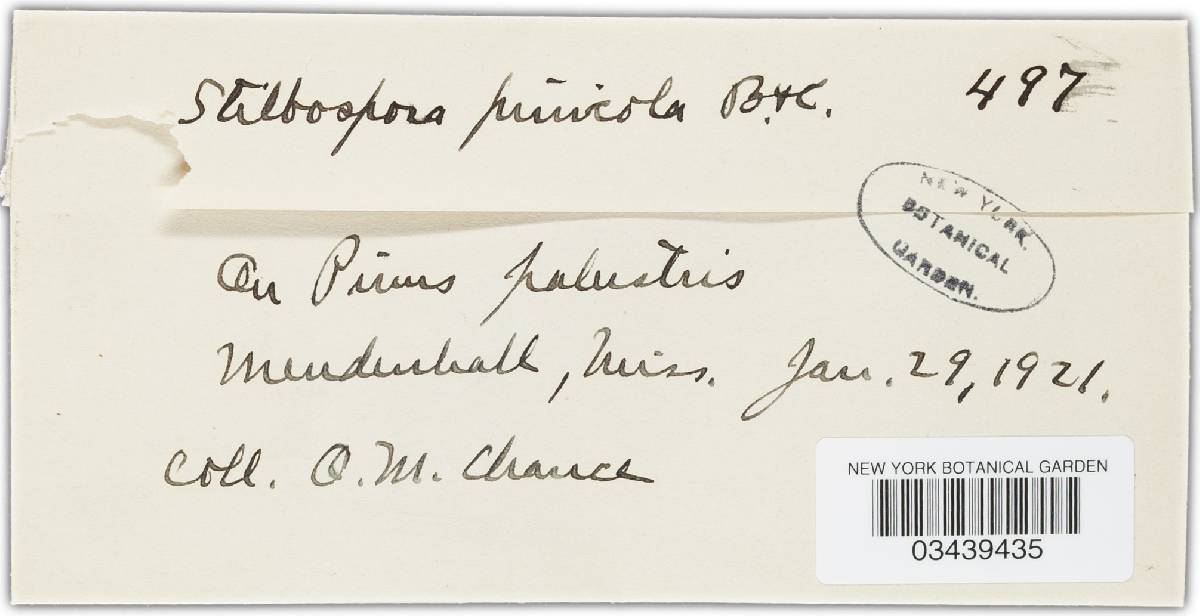 Stilbospora pinicola B.&C. 497
NEW YORK
BOTANICAL
GARDEN.
On Pinus palustris
Mendenhall, Miss. Jan. 29, 1921.
Coll. O.M. Chance
NEW YORK BOTANICAL GARDEN
03439435